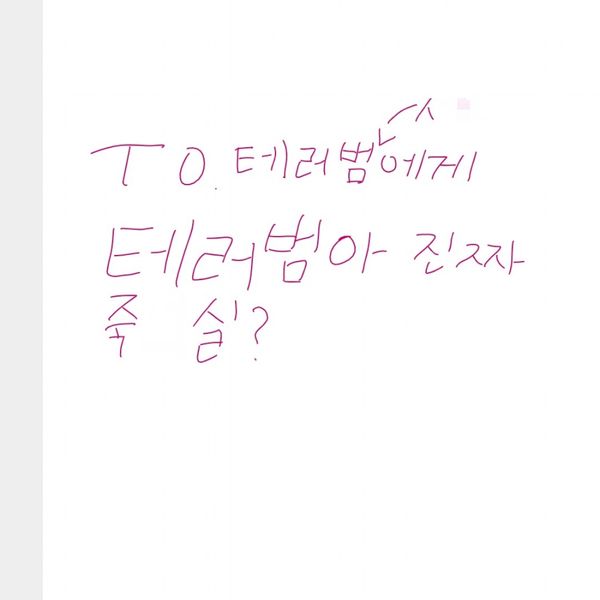 ㅅ
TO. 테러범에게
테러범아 진짜
죽 실?